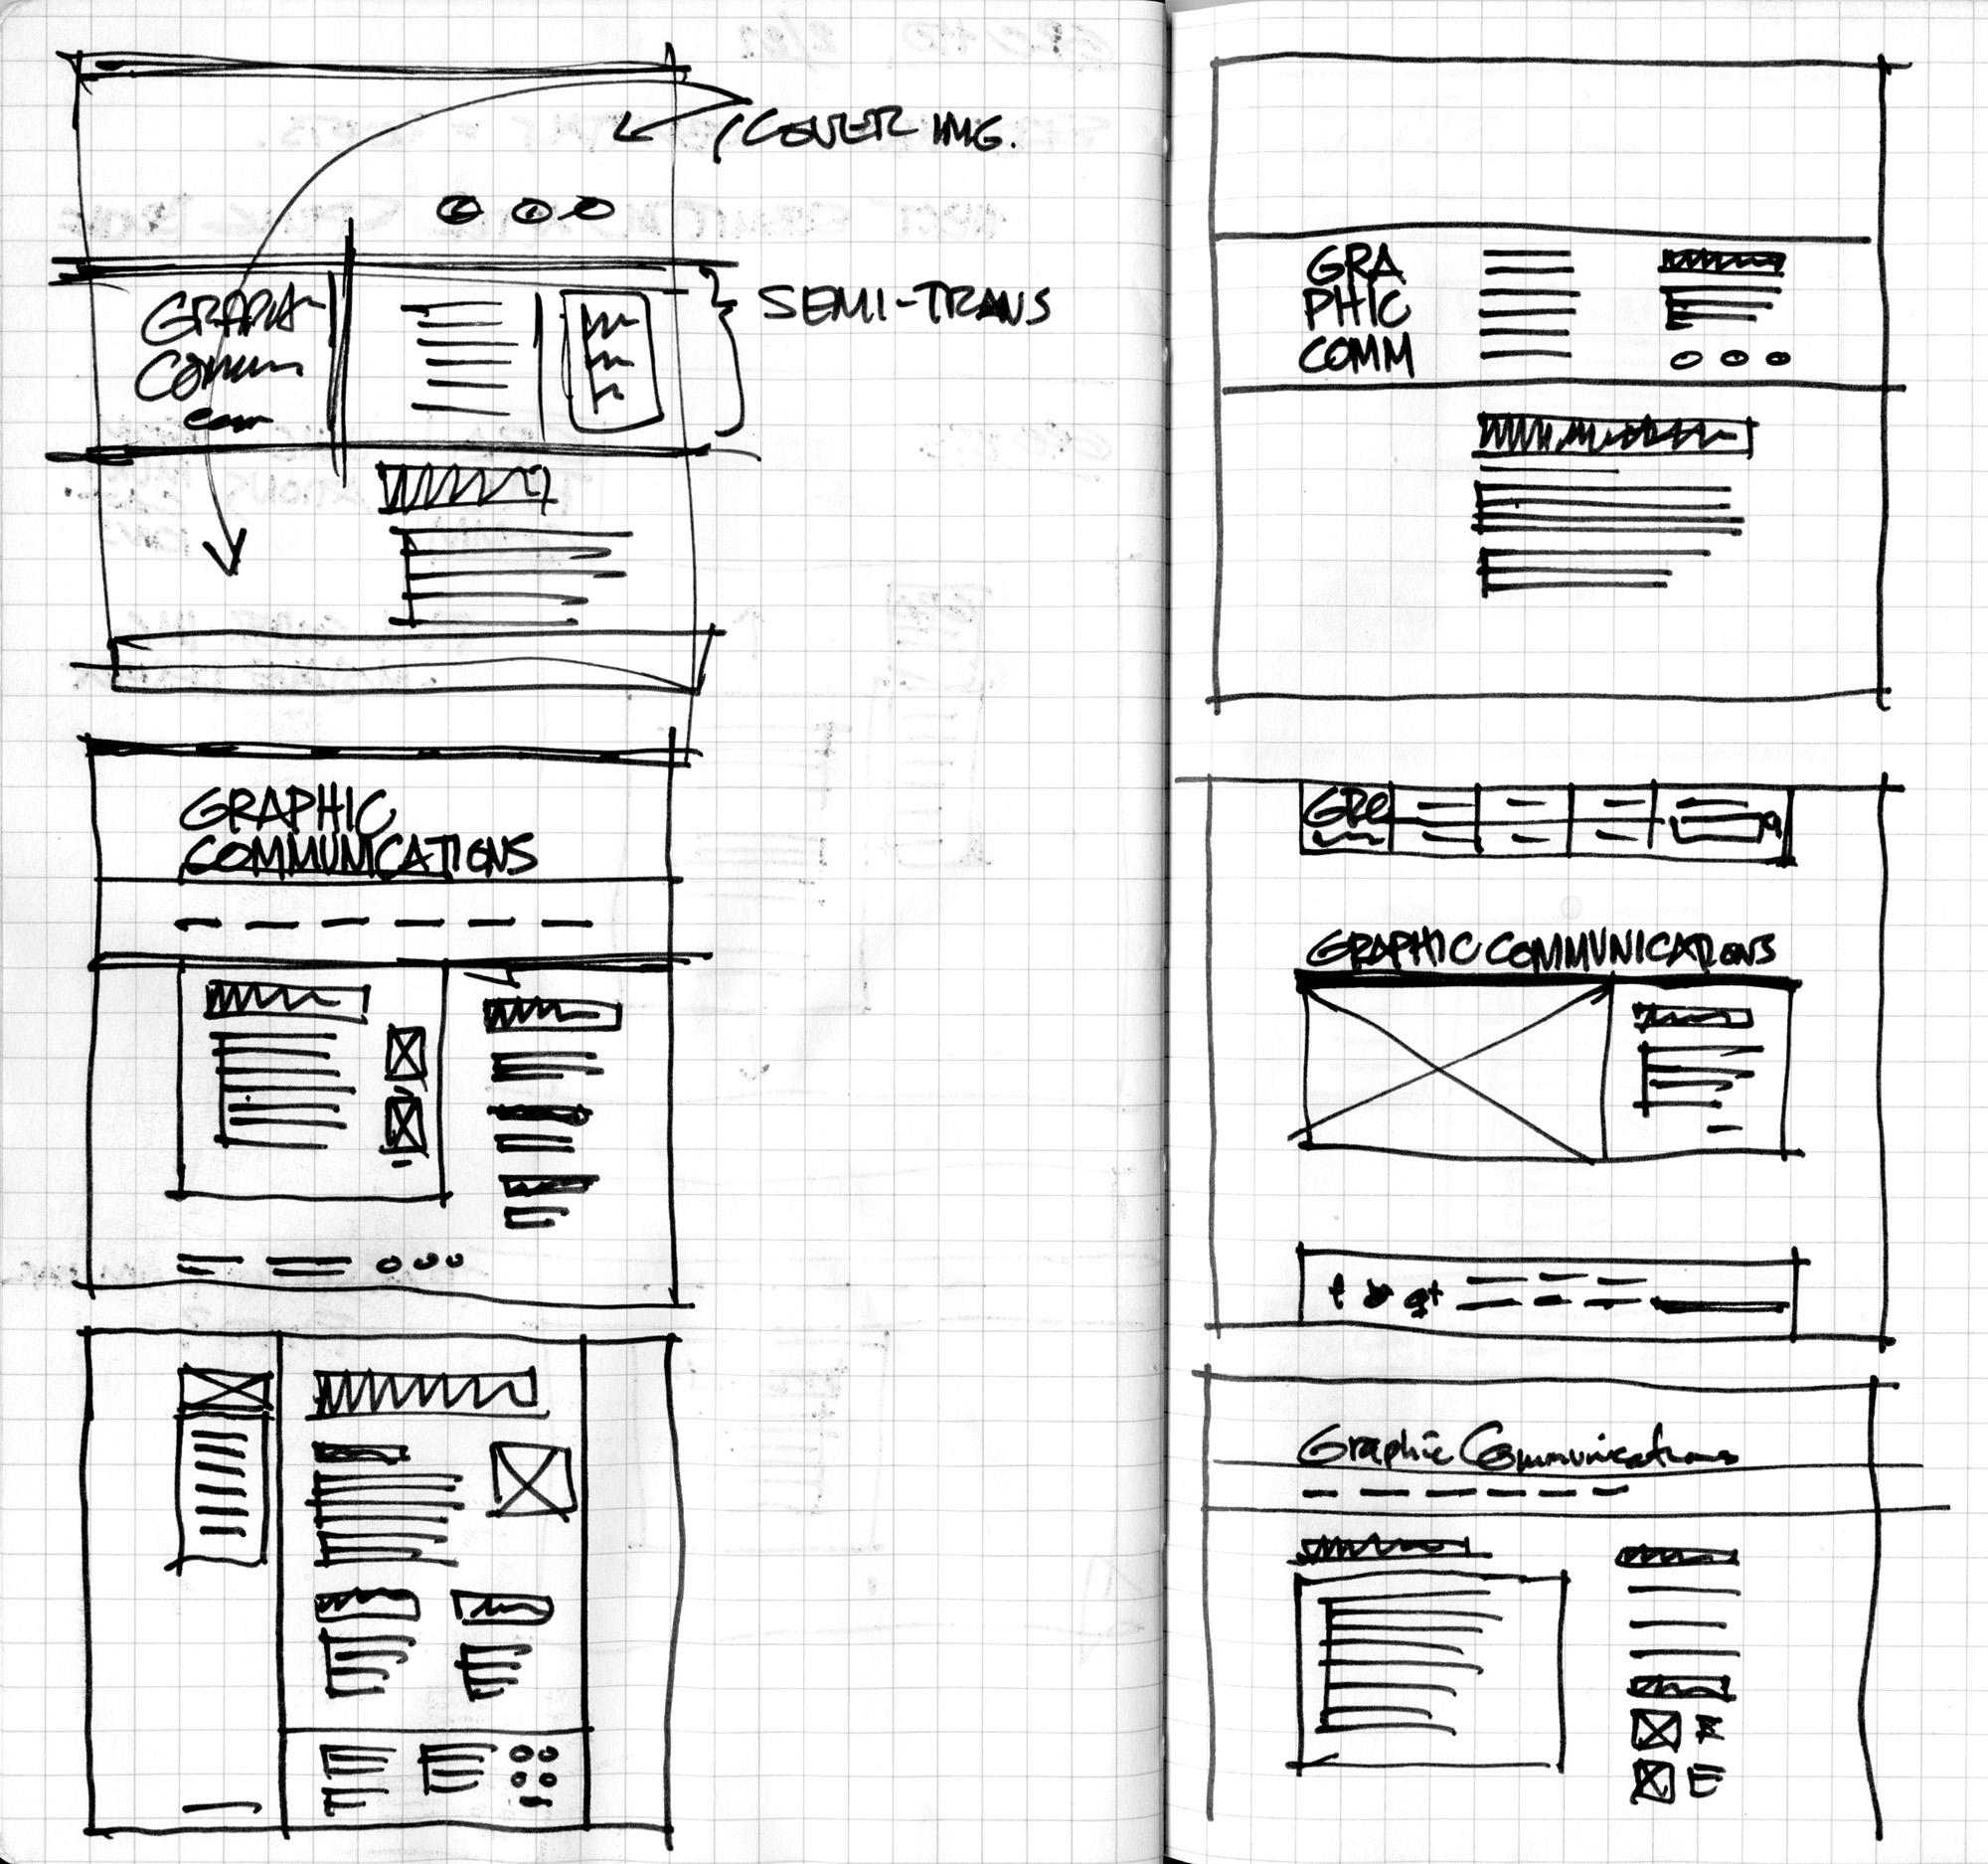 COVER IMG.
SEMI-TRANS
GRAPHIC
COMMUNICATIONS
GRA
PHIC
COMM
GRC
GRAPHIC COMMUNICATIONS
t g+
Graphic Communications